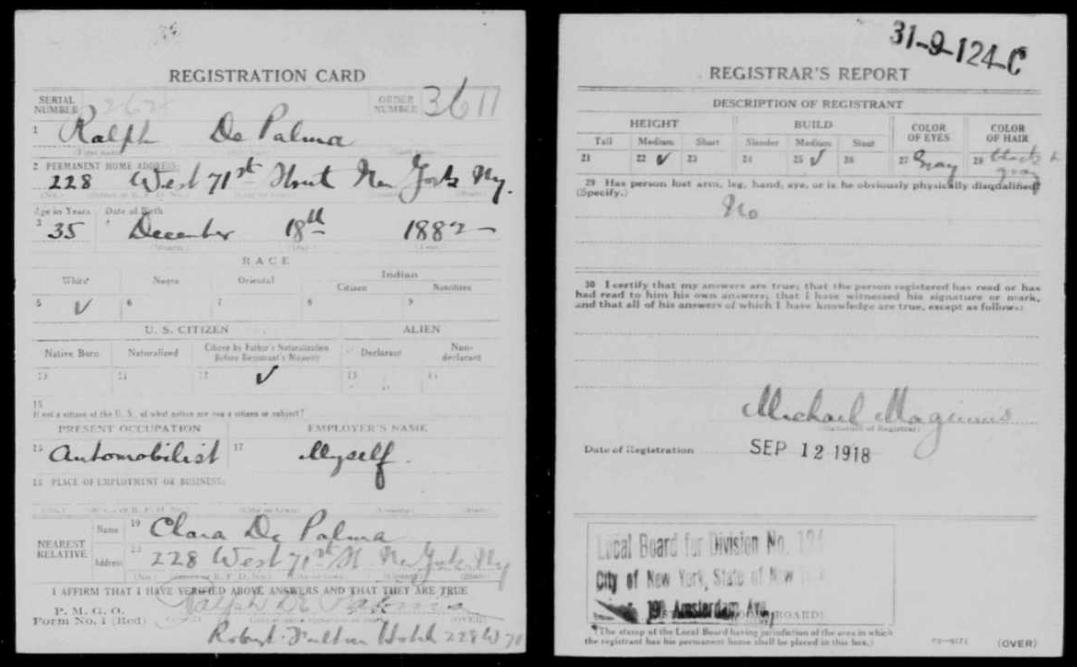 REGISTRATION CARD
SERIAL NUMBER
ORDER NUMBER 3611
1 Ralph De Palma
2 PERMANENT HOME ADDRESS:
228 West 71st Street New York Ny.
Age in Years Date of Birth
3 35 December 18th 1882
RACE
White Negro Oriental Indian
Citizen Noncitizen
5 ✓ 6 7 8 9
U. S. CITIZEN ALIEN
Native Born Naturalized Citizen by Father's Naturalization Before Registrant's Majority Declarant Non-declarant
10 11 12 ✓ 13 14
15
If not a citizen of the U. S., of what nation are you a citizen or subject?
PRESENT OCCUPATION EMPLOYER'S NAME
16 Automobilist 17 Myself.
18 PLACE OF EMPLOYMENT OR BUSINESS:
NEAREST RELATIVE
Name 19 Clara De Palma
Address 20 228 West 71st St New York Ny
I AFFIRM THAT I HAVE VERIFIED ABOVE ANSWERS AND THAT THEY ARE TRUE
P. M. G. O.
Form No. 1 (Red) Ralph De Palma (OVER)
Robert Fulton Hotel 228 W 71
31-9-124-C
REGISTRAR'S REPORT
DESCRIPTION OF REGISTRANT
HEIGHT BUILD COLOR OF EYES COLOR OF HAIR
Tall Medium Short Slender Medium Stout
21 22 ✓ 23 24 25 ✓ 26 27 Gray 28 Black &
gray
29 Has person lost arm, leg, hand, eye, or is he obviously physically disqualified?
(Specify.)
No
30 I certify that my answers are true; that the person registered has read or has
had read to him his own answers; that I have witnessed his signature or mark,
and that all of his answers of which I have knowledge are true, except as follows:
Michael
(Signature of Registrar)
Date of Registration SEP 12 1918
Local Board for Division No. 124
City of New York, State of New
Amsterdam Ave,
BOARD)
(The stamp of the Local Board having jurisdiction of the area in which
the registrant has his permanent home shall be placed in this box.)
(OVER)